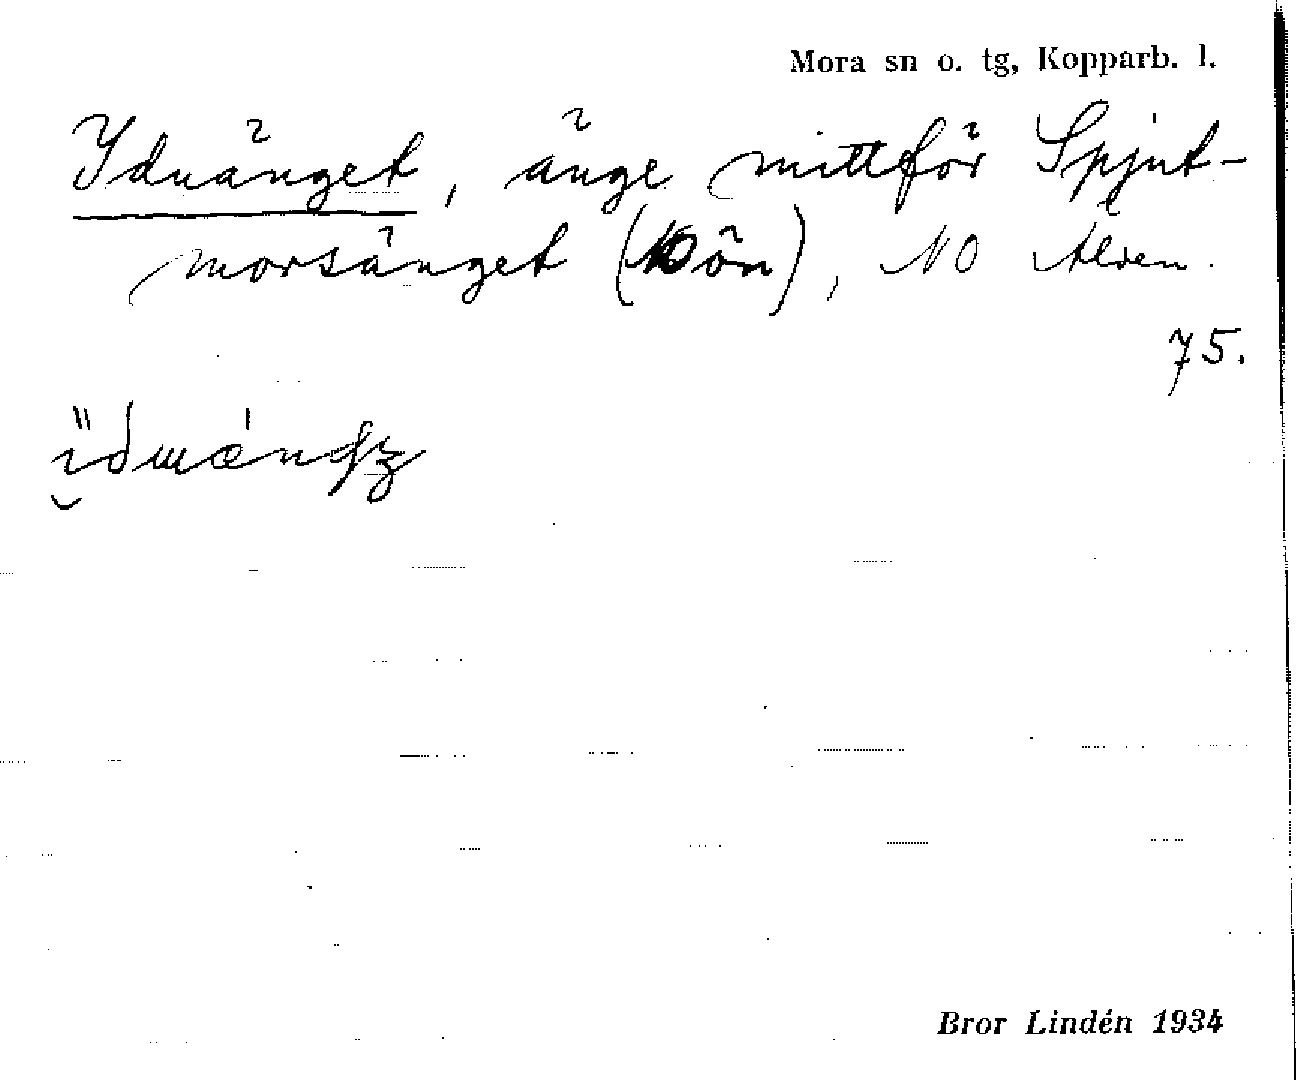 Mora sn o. tg, Kopparb. l.
Iduänget, änge mittför Spjut-
morsänget (ön), NO Älven.
75.
Bror Lindén 1934